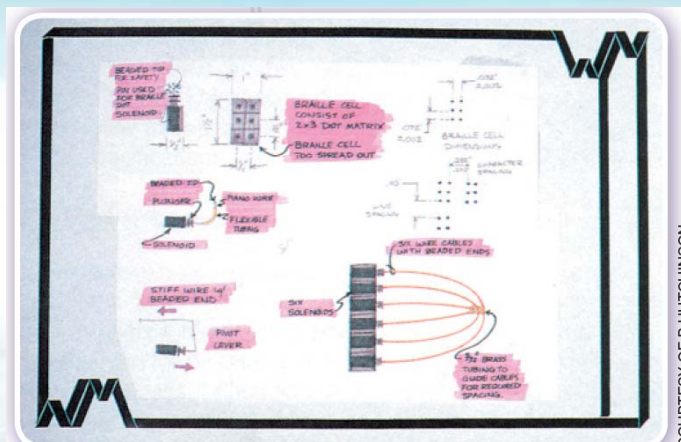 BEADED TIP
FOR SAFETY
PIN USED
FOR BRAILLE
DOT
SOLENOID
1"
1/2"
BRAILLE CELL
CONSIST OF
2x3 DOT MATRIX
BRAILLE CELL
TOO SPREAD OUT
.092"
±.002
.092
±.002
BRAILLE CELL
DIMENSIONS
CHARACTER
SPACING
.40
LINE
SPACING
BEADED TIP
PLUNGER
SOLENOID
PIANO WIRE
FLEXIBLE
TUBING
STIFF WIRE W/
BEADED END
PIVOT
LEVER
SIX WIRE CABLES
WITH BEADED ENDS
SIX
SOLENOIDS
BRASS
TUBING TO
GUIDE CABLES
FOR REQUIRED
SPACING.
COURTESY OF R HUTCHINSON